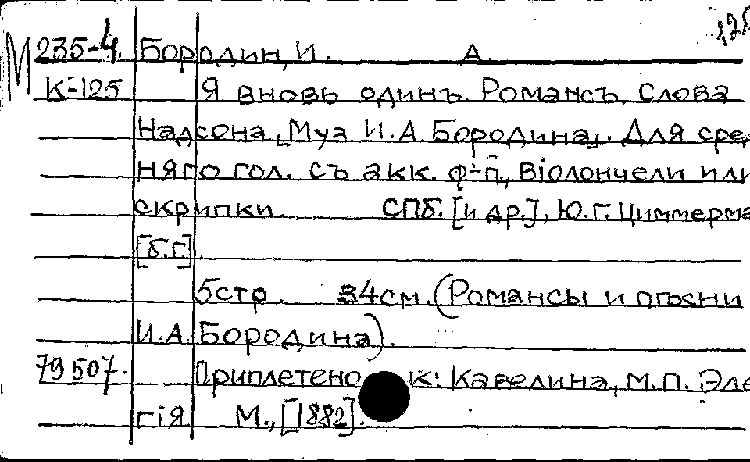 М 235-4. Бородин, И. А
К-125 Я вновь одинъ. Романсъ. Слова
Надсона, Муз И.А. Бородина. Для сред
няго гол. съ акк. ф-п., віолончели или
скрипки СПб. [и др.], Ю.Г. Циммерма
[б.г]
5стр 34см. (Романсы и пѣсни
И.А. Бородина).
79507. Приплетено к: Кавелина, М.П. Эле
гія М., [1882].